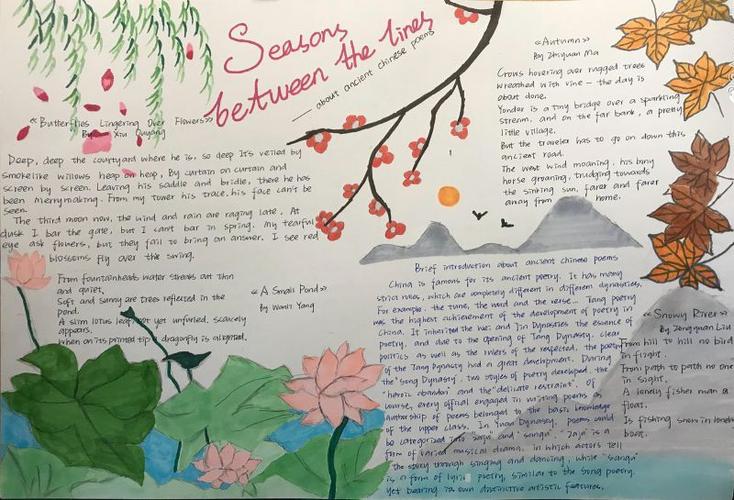 Seasons
between the lines
— about ancient chinese poems
《Butterflies Lingering Over Flowers》
By Xiu Ouyang
Deep, deep the courtyard where he is, so deep It's veiled by
smokelike willows heap on heap, By curtain on curtain and
screen by screen. Leaving his saddle and bridle, there he has
been merrymaking. From my tower his trace, his face can't be
seen.
The third moon now, the wind and rain are raging late, At
dusk I bar the gate, but I can't bar in spring. My tearful
eye ask flowers, but they fail to bring an answer. I see red
blossoms fly over the swing.
《A Small Pond》
by Wanli Yang
From fountainheads water streaks out thin
and quiet,
Soft and sunny are trees reflected in the
pond.
A slim lotus leaf, not yet unfurled, scarcely
appears.
When on its pointed tip a dragonfly is alighted.
《Autumn》
By Zhiyuan Ma
Crows hovering over rugged trees
wreathed with vine — the day is
about done.
Yonder is a tiny bridge over a sparkling
stream, and on the far bank, a pretty
little village.
But the traveler has to go on down this
ancient road.
The west wind moaning, his bony
horse groaning, trudging towards
the sinking sun, farer and farer
away from home.
Brief introduction about ancient chinese poems
China is famous for its ancient poetry. It has many
strict rules, which are completely different in different dynasties.
For example, the tune, the word and the verse... Tang poetry
was the highest achievement of the development of poetry in
China. It inherited the Wei and Jin Dynasties the essence of
poetry, and due to the opening of Tang Dynasty, clear
politics as well as the rulers of the respected, the poetry
of the Tang Dynasty had a great development. During
the "Song Dynasty, two styles of poetry developed, the
"heroic abandon" and the "delicate restraint". Of
course, every official engaged in writing poems as
authorship of poems belonged to the basic knowledge
of the upper class. In Yuan Dynasty, poems could
be categorized into "zaju" and "sanqu". "Zaju" is a
form of varied musical drama, in which actors tell
the story through singing and dancing, while "sanqu"
is a form of lyric poetry, similar to the Song poetry.
Yet bearing its own distinctive artistic features.
《Snowy River》
By Zongyuan Liu
From hill to hill no bird
in flight.
From path to path no one
in sight.
A lonely fisher man a
float.
Is fishing snow in lonely
boat.